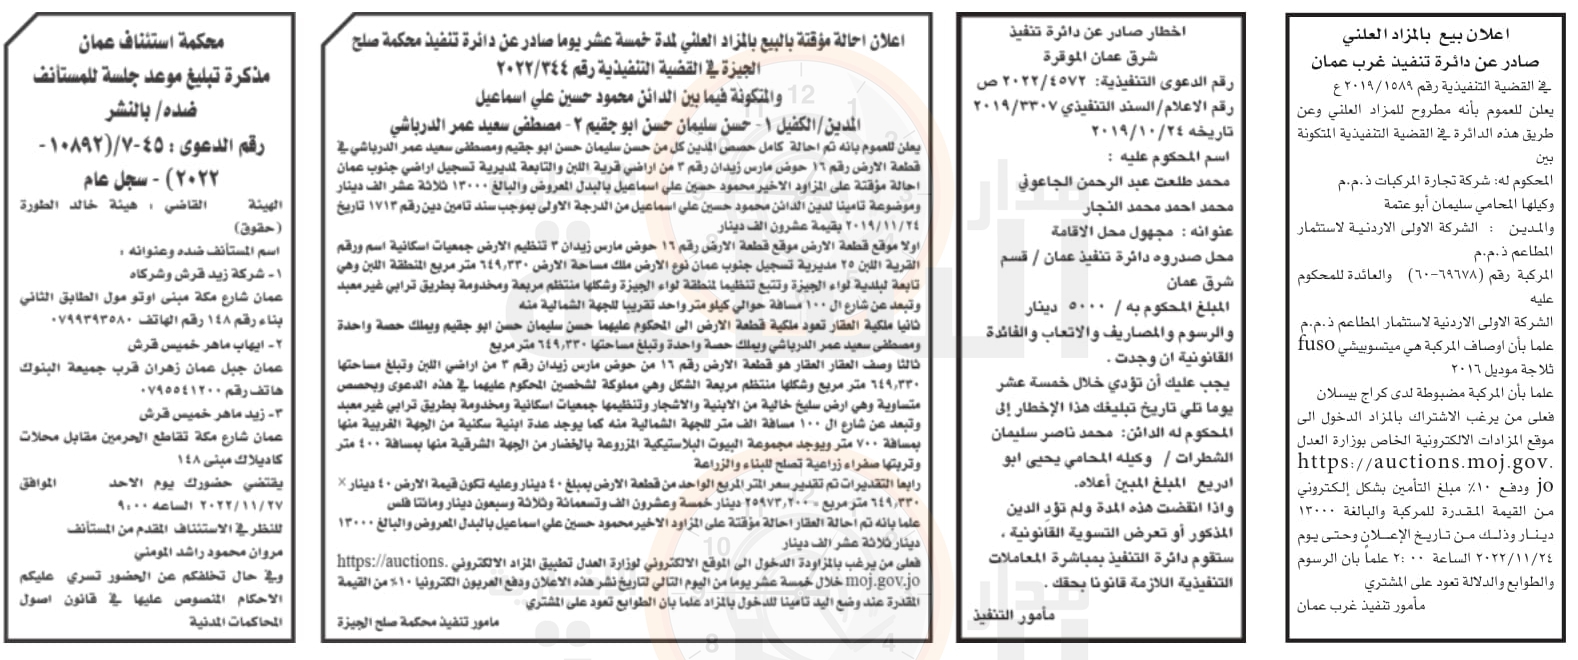 اعلان بيع بالمزاد العلني
صادر عن دائرة تنفيذ غرب عمان
في القضية التنفيذية رقم ٢٠١٩/١٥٨٩ ع
يعلن للعموم بأنه مطروح للمزاد العلني وعن
طريق هذه الدائرة في القضية التنفيذية المتكونة
بين
المحكوم له: شركة تجارة المركبات ذ.م.م
وكيلها المحامي سليمان أبو عتمة
والمدين : الشركة الاولى الاردنية لاستثمار
المطاعم ذ.م.م
المركبة رقم (٦٩٦٧٨-٦٠) والعائدة للمحكوم
عليه
الشركة الاولى الاردنية لاستثمار المطاعم ذ.م.م
علما بأن اوصاف المركبة هي ميتسوبيشي fuso
ثلاجة موديل ٢٠١٦
علما بأن المركبة مضبوطة لدى كراج بيسلان
فعلى من يرغب الاشتراك بالمزاد الدخول الى
موقع المزادات الالكترونية الخاص بوزارة العدل
https://auctions.moj.gov.
jo ودفع ١٠٪ مبلغ التأمين بشكل إلكتروني
من القيمة المقدرة للمركبة والبالغة ١٣٠٠٠
دينار وذلك من تاريخ الإعلان وحتى يوم
٢٠٢٢/١١/٢٤ الساعة ٢:٠٠ علماً بأن الرسوم
والطوابع والدلالة تعود على المشتري
مأمور تنفيذ غرب عمان
اخطار صادر عن دائرة تنفيذ
شرق عمان الموقرة
رقم الدعوى التنفيذية: ٢٠٢٢/٤٥٧٢ ص
رقم الاعلام/السند التنفيذي ٢٠١٩/٣٣٠٧
تاريخه ٢٠١٩/١٠/٢٤
اسم المحكوم عليه :
محمد طلعت عبد الرحمن الجاعوني
محمد احمد محمد النجار
عنوانه : مجهول محل الاقامة
محل صدروه دائرة تنفيذ عمان / قسم
شرق عمان
المبلغ المحكوم به / ٥٠٠٠ دينار
والرسوم والمصاريف والاتعاب والفائدة
القانونية ان وجدت .
يجب عليك أن تؤدي خلال خمسة عشر
يوما تلي تاريخ تبليغك هذا الإخطار إلى
المحكوم له الدائن: محمد ناصر سليمان
الشطرات / وكيله المحامي يحيى ابو
ادريع المبلغ المبين أعلاه.
واذا انقضت هذه المدة ولم تؤد الدين
المذكور أو تعرض التسوية القانونية ،
ستقوم دائرة التنفيذ بمباشرة المعاملات
التنفيذية اللازمة قانونا بحقك .
مأمور التنفيذ
اعلان احالة مؤقتة بالبيع بالمزاد العلني لمدة خمسة عشر يوما صادر عن دائرة تنفيذ محكمة صلح
الجيزة في القضية التنفيذية رقم ٢٠٢٢/٣٤٤
والمتكونة فيما بين الدائن محمود حسين علي اسماعيل
المدين/الكفيل ١- حسن سليمان حسن ابو جقيم ٢- مصطفى سعيد عمر الدرباشي
يعلن للعموم بانه تم احالة كامل حصص المدين كل من حسن سليمان حسن ابو جقيم ومصطفى سعيد عمر الدرباشي في
قطعة الارض رقم ١٦ حوض مارس زيدان رقم ٣ من اراضي قرية اللبن والتابعة لمديرية تسجيل اراضي جنوب عمان
احالة مؤقتة على المزاود الاخير محمود حسين علي اسماعيل بالبدل المعروض والبالغ ١٣٠٠٠ ثلاثة عشر الف دينار
وموضوعة تامينا لدين الدائن محمود حسين علي اسماعيل من الدرجة الاولى بموجب سند تامين دين رقم ١٧١٣ تاريخ
٢٠١٩/١١/٢٤ بقيمة عشرون الف دينار
اولا موقع قطعة الارض موقع قطعة الارض رقم ١٦ حوض مارس زيدان ٣ تنظيم الارض جمعيات اسكانية اسم ورقم
القرية اللبن ٢٥ مديرية تسجيل جنوب عمان نوع الارض ملك مساحة الارض ٦٤٩,٣٣٠ متر مربع المنطقة اللبن وهي
تابعة لبلدية لواء الجيزة وتتبع تنظيما لمنطقة لواء الجيزة وشكلها منتظم مربعة ومخدومة بطريق ترابي غير معبد
وتبعد عن شارع ال ١٠٠ مسافة حوالي كيلو متر واحد تقريبا للجهة الشمالية منه
ثانيا ملكية العقار تعود ملكية قطعة الارض الى المحكوم عليهما حسن سليمان حسن ابو جقيم ويملك حصة واحدة
ومصطفى سعيد عمر الدرباشي ويملك حصة واحدة وتبلغ مساحتها ٦٤٩,٣٣٠ متر مربع
ثالثا وصف العقار العقار هو قطعة الارض رقم ١٦ من حوض مارس زيدان رقم ٣ من اراضي اللبن وتبلغ مساحتها
٦٤٩,٣٣٠ متر مربع وشكلها منتظم مربعة الشكل وهي مملوكة لشخصين المحكوم عليهما في هذه الدعوى وبحصص
متساوية وهي ارض سليخ خالية من الابنية والاشجار وتنظيمها جمعيات اسكانية ومخدومة بطريق ترابي غير معبد
وتبعد عن شارع ال ١٠٠ مسافة الف متر للجهة الشمالية منه كما يوجد عدة ابنية سكنية من الجهة الغربية منها
بمسافة ٧٠٠ متر ويوجد مجموعة البيوت البلاستيكية المزروعة بالخضار من الجهة الشرقية منها بمسافة ٤٠٠ متر
وتربتها صفراء زراعية تصلح للبناء والزراعة
رابعا التقديرات تم تقدير سعر المتر المربع الواحد من قطعة الارض بمبلغ ٤٠ دينار وعليه تكون قيمة الارض ٤٠ دينار ×
٦٤٩,٣٣٠ متر مربع = ٢٥٩٧٣,٢٠٠ دينار خمسة وعشرون الف وتسعمائة وثلاثة وسبعون دينار ومائتا فلس
علما بانه تم احالة العقار احالة مؤقتة على المزاود الاخير محمود حسين علي اسماعيل بالبدل المعروض والبالغ ١٣٠٠٠
دينار ثلاثة عشر الف دينار
فعلى من يرغب بالمزاودة الدخول الى الموقع الالكتروني لوزارة العدل تطبيق المزاد الالكتروني https://auctions.
moj.gov.jo خلال خمسة عشر يوما من اليوم التالي لتاريخ نشر هذه الاعلان ودفع العربون الكترونيا ١٠٪ من القيمة
المقدرة عند وضع اليد تامينا للدخول بالمزاد علما بان الطوابع تعود على المشتري
مامور تنفيذ محكمة صلح الجيزة
محكمة استئناف عمان
مذكرة تبليغ موعد جلسة للمستأنف
ضده/ بالنشر
رقم الدعوى : ٤٥-٧/(١٠٨٩٢-
٢٠٢٢) - سجل عام
الهيئة القاضي : هيئة خالد الطورة
(حقوق)
اسم المستأنف ضده وعنوانه :
١- شركة زيد قرش وشركاه
عمان شارع مكة مبنى اوتو مول الطابق الثاني
بناء رقم ١٤٨ رقم الهاتف ٠٧٩٩٣٩٣٥٨٠
٢- ايهاب ماهر خميس قرش
عمان جبل عمان زهران قرب جميعة البنوك
هاتف رقم ٠٧٩٥٥٤١٢٠٠
٣- زيد ماهر خميس قرش
عمان شارع مكة تقاطع الحرمين مقابل محلات
كاديلاك مبنى ١٤٨
يقتضي حضورك يوم الاحد الموافق
٢٠٢٢/١١/٢٧ الساعه ٩:٠٠
للنظر في الاستئناف المقدم من المستأنف
مروان محمود راشد المومني
وفي حال تخلفكم عن الحضور تسري عليكم
الاحكام المنصوص عليها في قانون اصول
المحاكمات المدنية